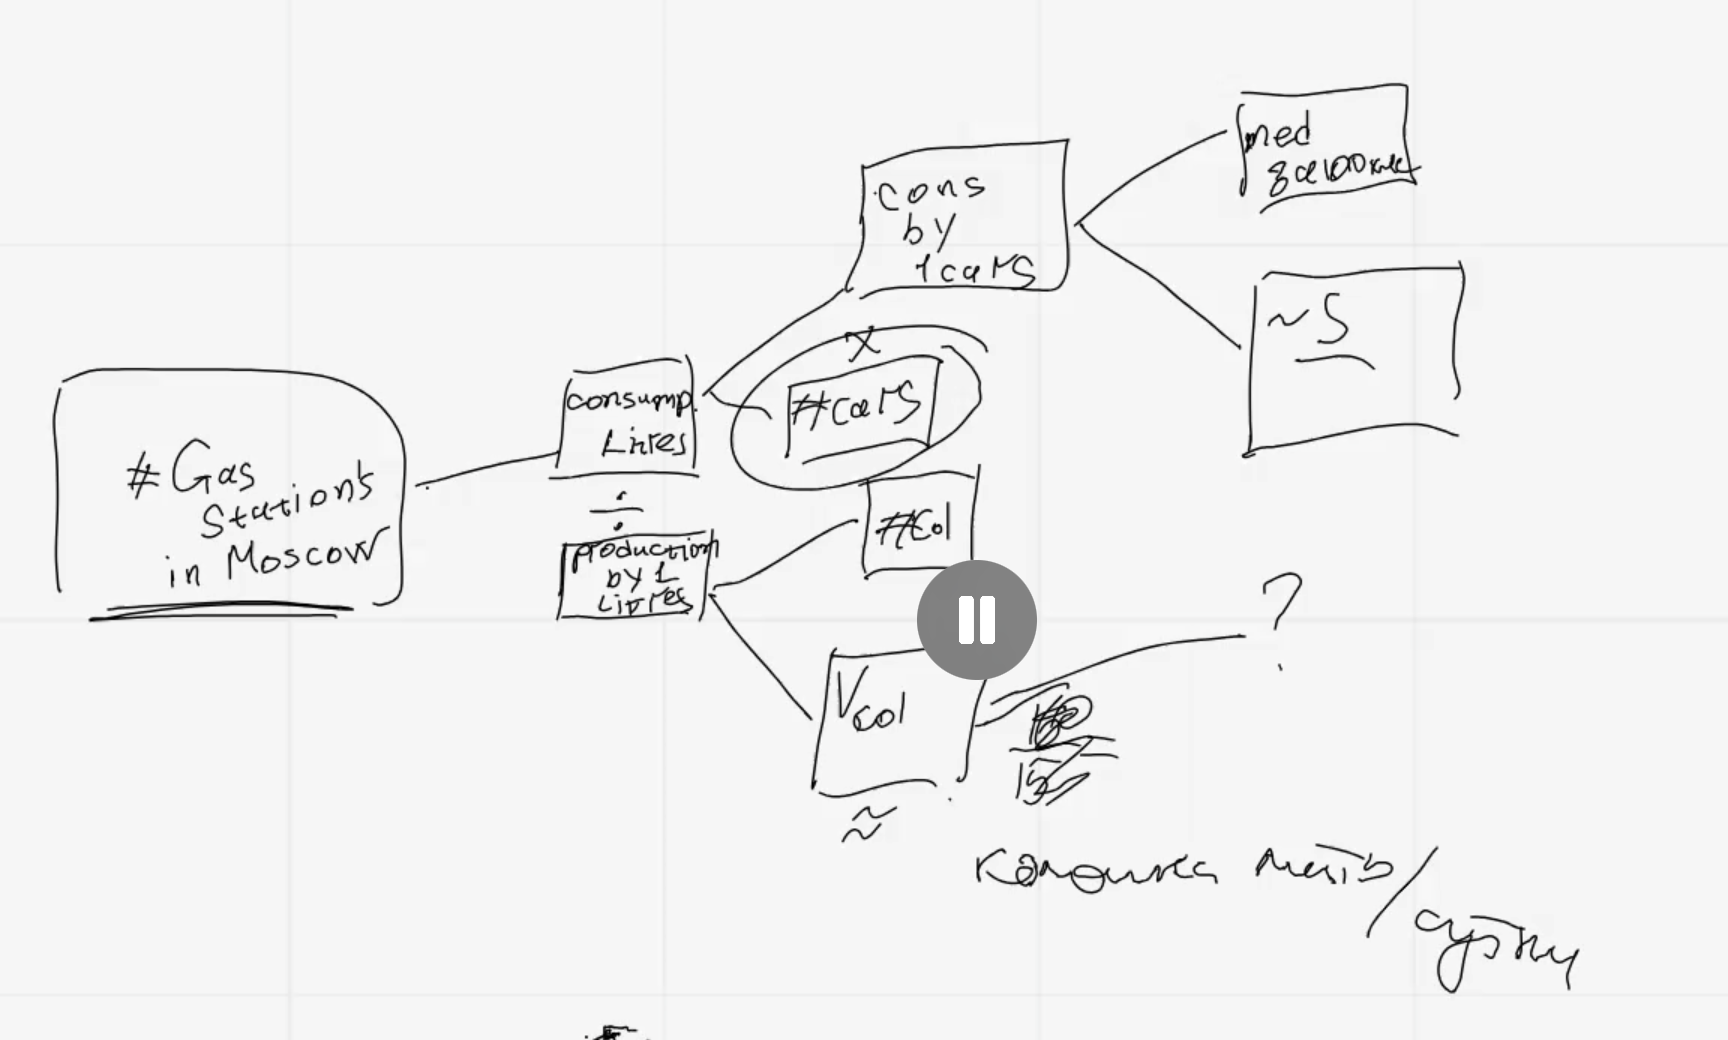 # Gas
Stations
in Moscow
consump.
Litres
÷
production
by 1
Litres
cons
by
1 cars
x
#cars
#Col
Vcol
≈
med
~ S
?
колонка
/
сутки